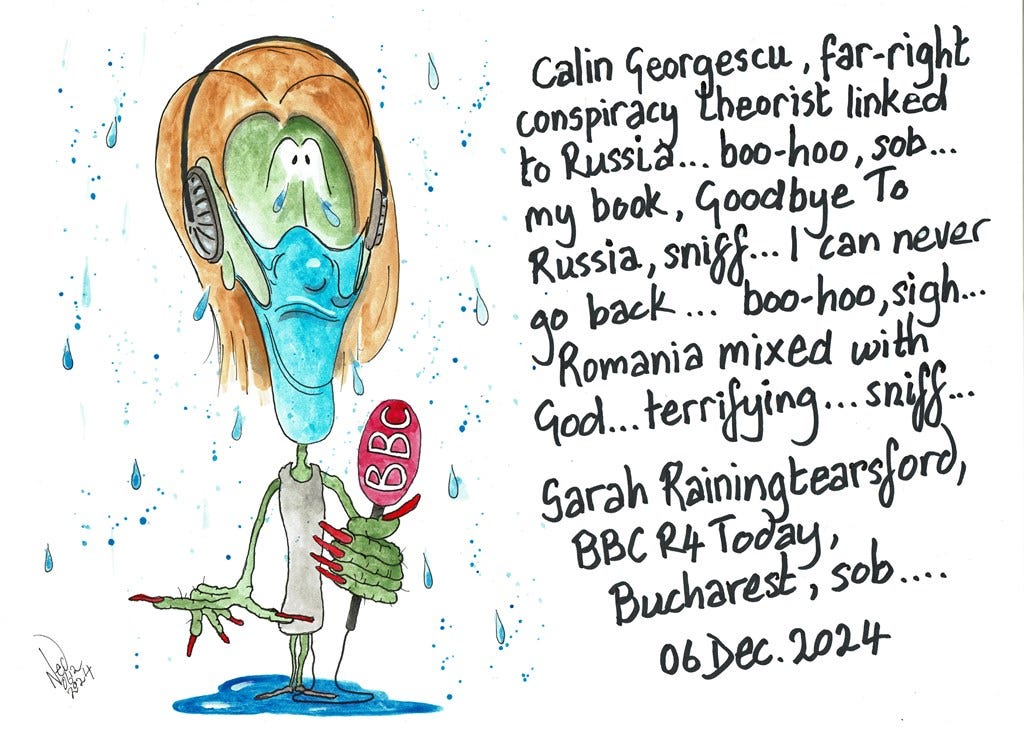 Calin Georgescu, far-right
conspiracy theorist linked
to Russia... boo-hoo, sob...
my book, Goodbye To
Russia, sniff... I can never
go back... boo-hoo, sigh...
Romania mixed with
God... terrifying... sniff...
Sarah Rainingtearsford,
BBC R4 Today,
Bucharest, sob....
06 Dec. 2024
BBC
2024